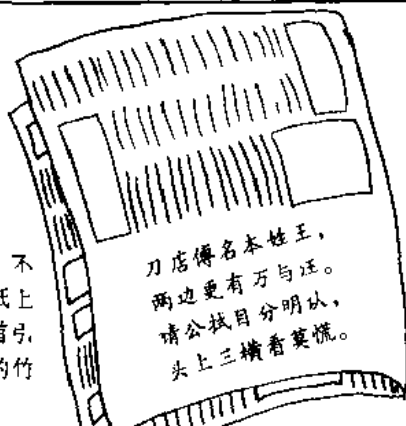 不
上
引,
的竹
刀店傅名本姓王，
两边更有万与汪。
请公拭目分明认，
头上三横看莫慌。